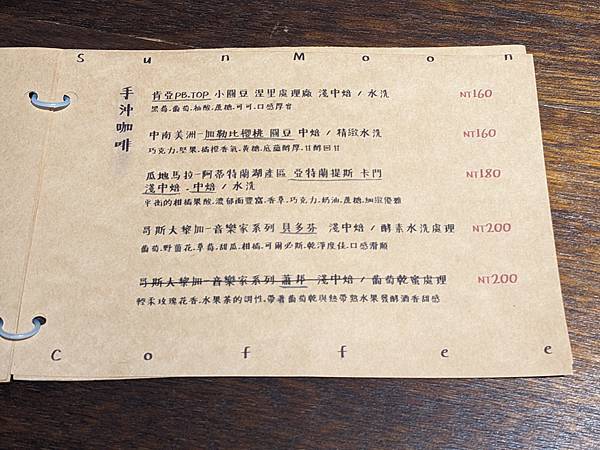 SunMoon
手沖咖啡
肯亞PB.TOP 小圓豆 涅里處理廠 淺中焙 / 水洗 NT160
黑莓.葡萄.柚酸.蔗糖.可可.口感厚實
中南美洲-加勒比櫻桃 圓豆 中焙 / 精緻水洗 NT160
巧克力.堅果.橘橙香氣.黃糖.底蘊醇厚.甘醇回甘
瓜地馬拉-阿蒂特蘭湖產區 亞特蘭提斯 卡門 NT180
淺中焙.中焙 / 水洗
平衡的柑橘果酸.濃郁而豐富.香草.巧克力.奶油.蔗糖.細緻優雅
哥斯大黎加-音樂家系列 貝多芬 淺中焙 / 酵素水洗處理 NT200
葡萄.野薑花.草莓.甜瓜.柑橘.可爾必斯.乾淨度佳.口感滑順
哥斯大黎加-音樂家系列 蕭邦 淺中焙 / 葡萄乾蜜處理 NT200
輕柔玫瑰花香.水果茶的調性.帶著葡萄乾與熱帶熟水果發酵酒香甜感
Coffee